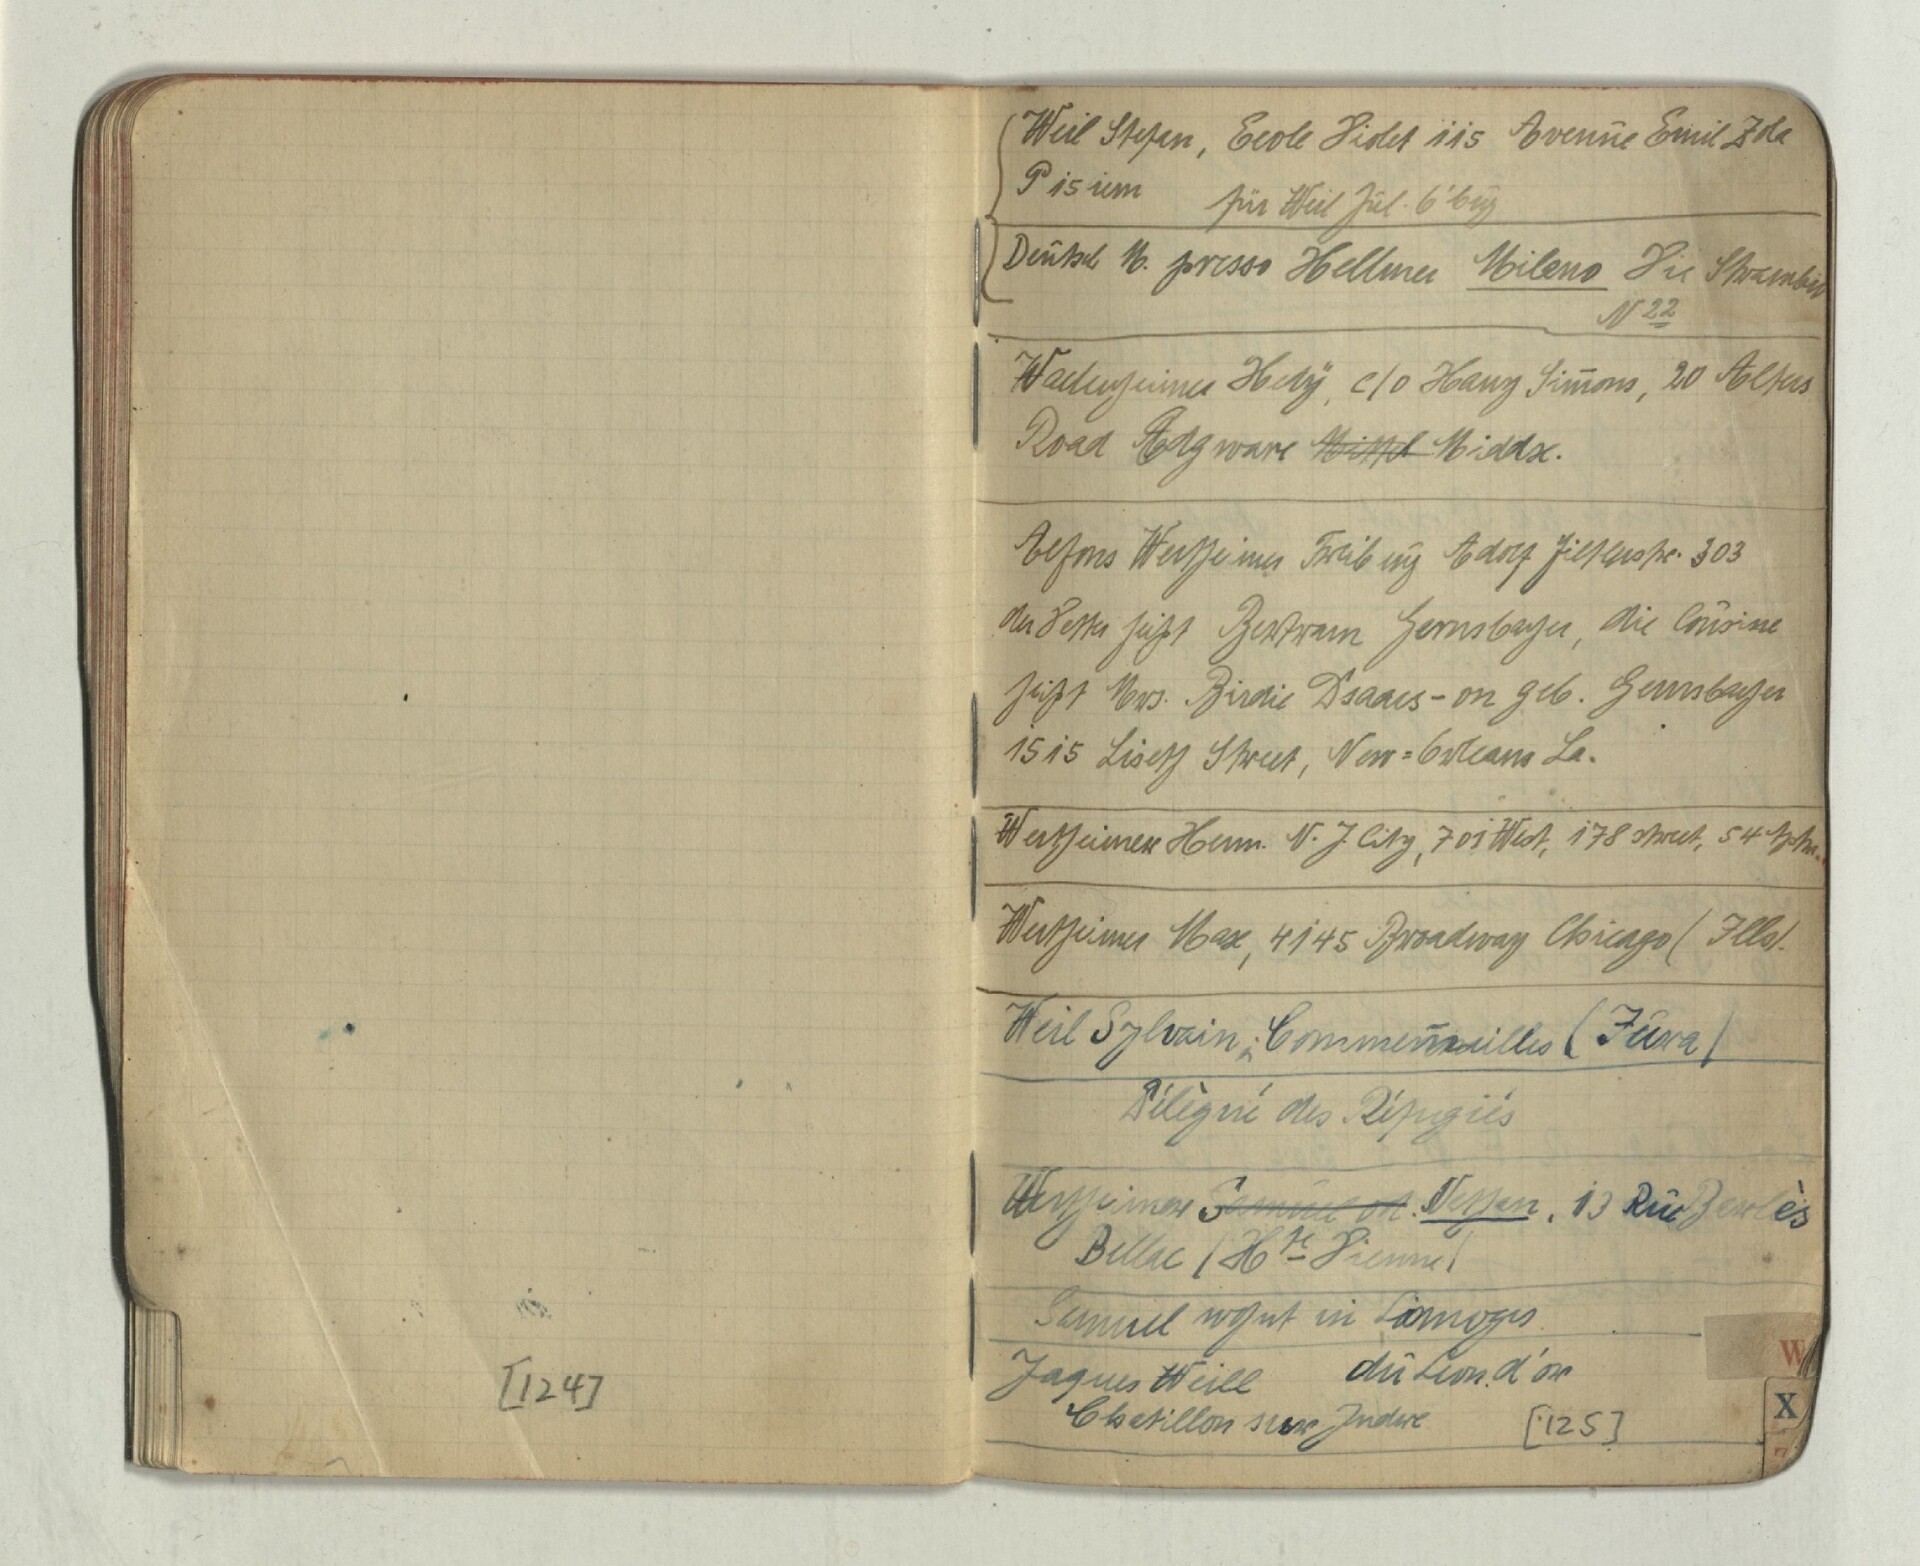 Weil Stefan, Ecole Violet 115 Avenue Emil Zola
P 15 iem
für Weil Jul. O'bg
Deutsch M. presso Hellmer Milano Via Strambio
N 22
Wachenheimer Hedÿ, c/o Hany Simons, 20 Alters
Road Adgware Middx.
Alfons Wertheimer Freiburg Adolf Hitlerstr. 303
der Vetter heißt Bertram Gernsbacher, die Cousine
heißt Mrs. Birdie Isaacs-on geb. Gernsbacher
1515 Street, New=Orleans La.
Wertheimer Herm. N.J. City, 701 West, 178 street, 54
Wertheimer Max, 4145 Broadway Chicago (Ills).
Weil Sylvain, Commenailles (Jura)
Délégué des Réfugiés
Wertheimer Samuel od. Nathan, 13 Rue
Bellac (Hte Vienne)
Samuel wohnt in Limoges
Jaques Weill du Lion d'or
Chatillon sur Indre
[124]
[125]
W
X